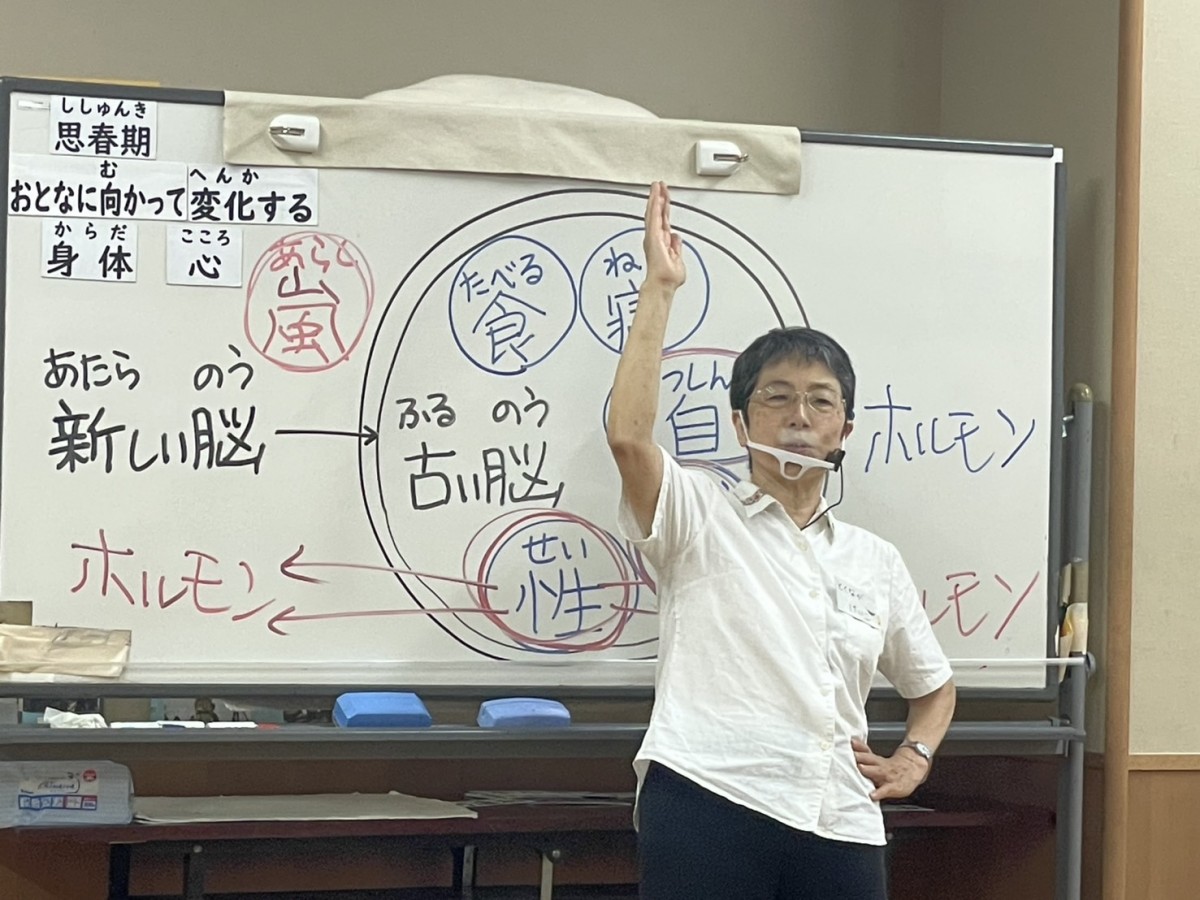 ししゅんき
思春期
む
おとなに向かって
へんか
変化する
からだ
身体
こころ
心
あらし
嵐
たべる
食
ね
寝
あたら のう
新しい脳
ふる のう
古い脳
っしん
自
ホルモン
せい
性
ホルモン
ルモン